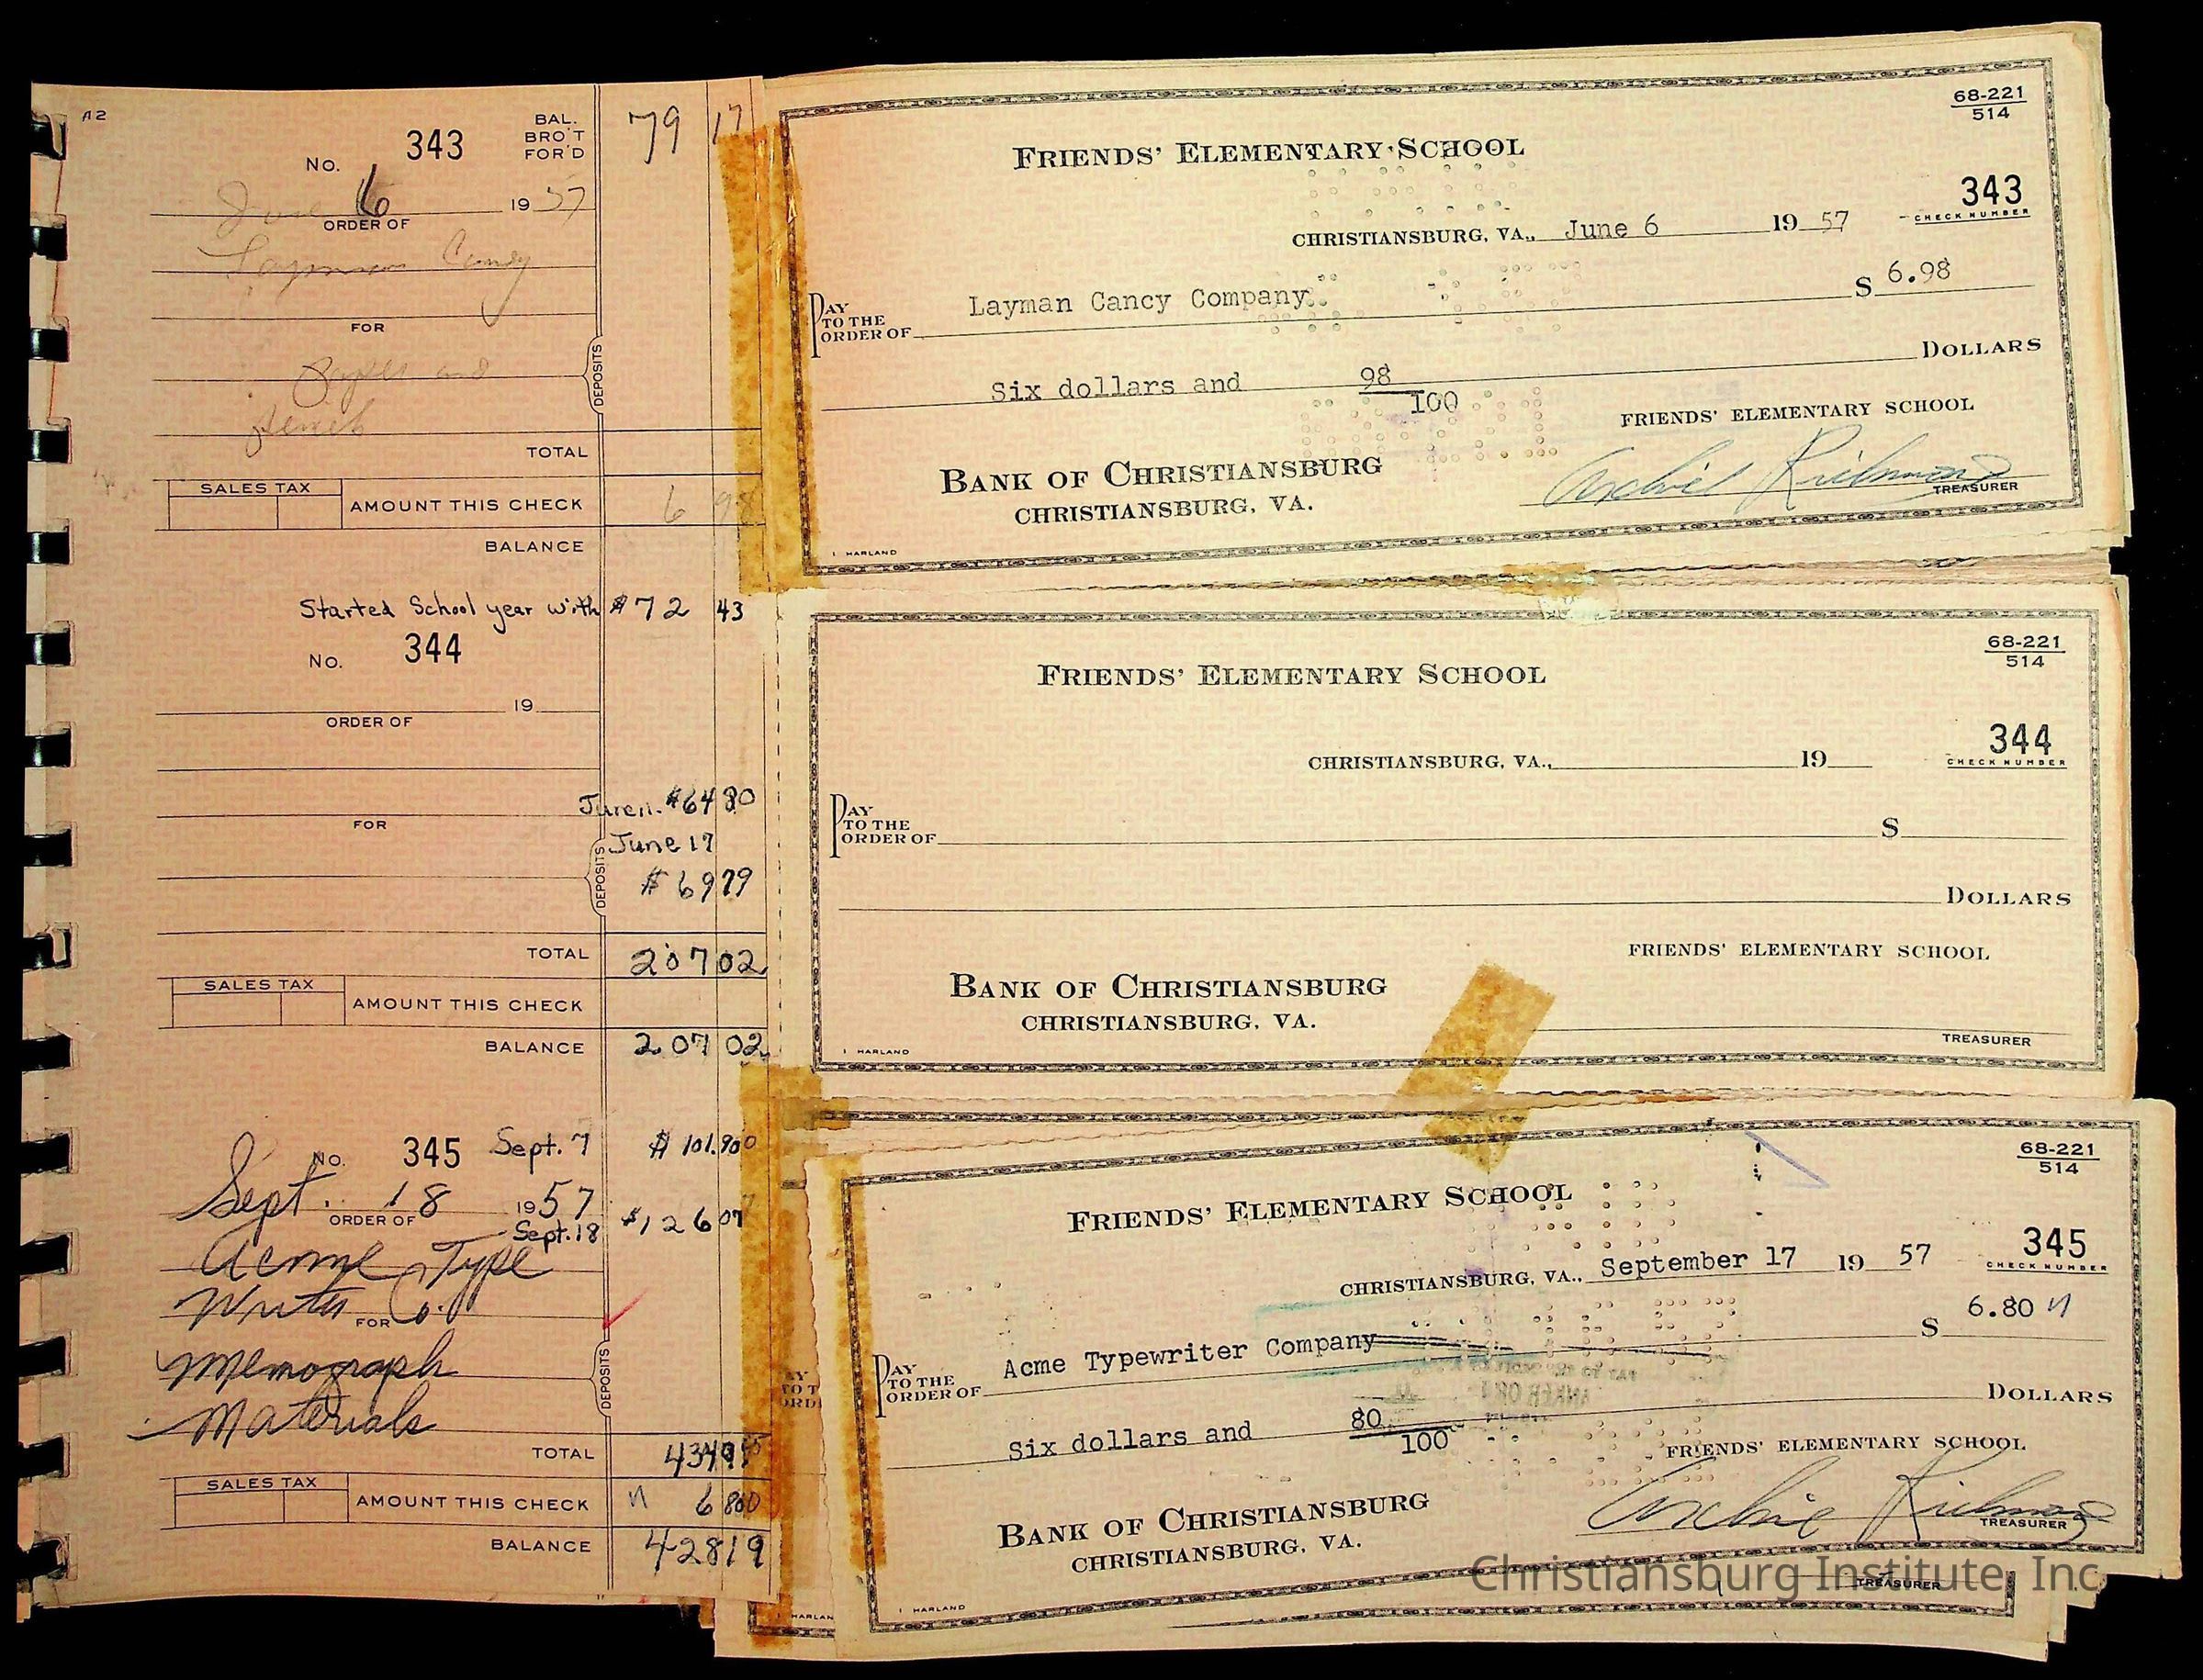 A2
No. 343 BAL. BRO'T FOR'D 79 17
June 6 19 57
ORDER OF
Candy
FOR
and
DEPOSITS
TOTAL
SALES TAX AMOUNT THIS CHECK 6 98
BALANCE
Started School year with $72 43
No. 344
19
ORDER OF
$64 80
FOR
June 17
DEPOSITS
$69 79
TOTAL 207 02
SALES TAX AMOUNT THIS CHECK
BALANCE 207 02
No. 345 Sept. 7 $101.90
Sept. 18 1957
ORDER OF
Sept. 18 $126 07
Acme Type
Writer Co.
FOR
Memograph
DEPOSITS
Materials
TOTAL 434
SALES TAX AMOUNT THIS CHECK 6 80
BALANCE 428 19
68-221
514
FRIENDS' ELEMENTARY SCHOOL
343
CHECK NUMBER
CHRISTIANSBURG, VA., June 6 19 57
PAY TO THE ORDER OF Layman Cancy Company $ 6.98
Six dollars and 98/100 DOLLARS
FRIENDS' ELEMENTARY SCHOOL
BANK OF CHRISTIANSBURG
CHRISTIANSBURG, VA.
Archie Richmond
TREASURER
HARLAND
68-221
514
FRIENDS' ELEMENTARY SCHOOL
344
CHECK NUMBER
CHRISTIANSBURG, VA., 19
PAY TO THE ORDER OF $
DOLLARS
FRIENDS' ELEMENTARY SCHOOL
BANK OF CHRISTIANSBURG
CHRISTIANSBURG, VA.
TREASURER
HARLAND
68-221
514
FRIENDS' ELEMENTARY SCHOOL
345
CHECK NUMBER
CHRISTIANSBURG, VA., September 17 19 57
PAY TO THE ORDER OF Acme Typewriter Company $ 6.80
Six dollars and 80/100 DOLLARS
FRIENDS' ELEMENTARY SCHOOL
BANK OF CHRISTIANSBURG
CHRISTIANSBURG, VA.
Archie Richmond
TREASURER
HARLAND
TREASURER
Christiansburg Institute, Inc